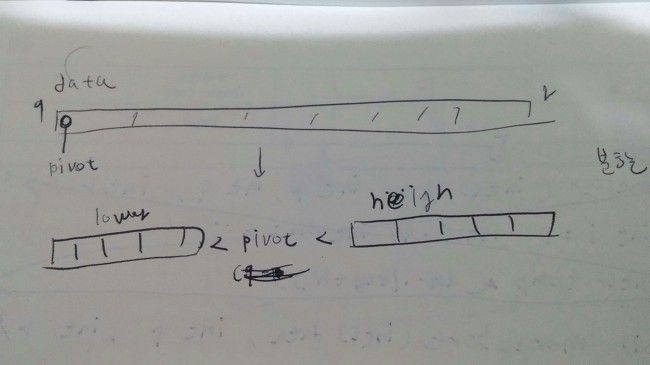 data
q r
pivot
분할
lower heigh
< pivot <